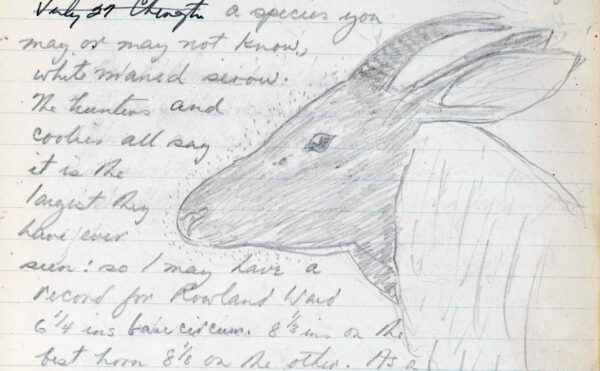 July 27 Chengtu a species you
may or may not know,
white maned serow.
The hunters and
coolies all say
it is the
largest they
have ever
seen: so I may have a
record for Rowland Ward
6 1/4 ins base circum. 8 1/3 ins on the
best horn 8 1/8 on the other. As a